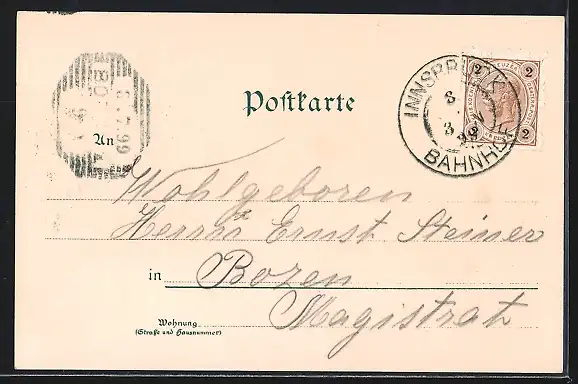 Postkarte
INNSBRUCK
BAHNHOF
2 KREUZER 2
2 2
6.7.99
An
Wohlgeboren
Herrn Ernst Steiner
in Bozen
Magistrat
Wohnung
(Straße und Hausnummer)